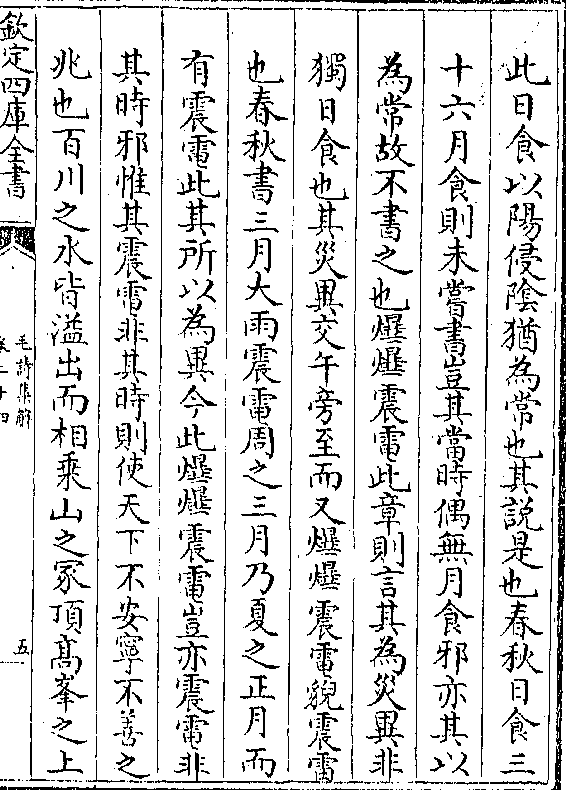 此日食以陽侵陰猶為常也其說是也春秋日食三
十六月食則未嘗書豈其當時偶無月食邪亦其以
為常故不書之也爗爗震電此章則言其為災異非
獨日食也其災異交午旁至而又爗爗震電貌震雷
也春秋書三月大雨震電周之三月乃夏之正月而
有震電此其所以為異今此爗爗震電豈亦震電非
其時邪惟其震電非其時則使天下不安寧不善之
兆也百川之水皆溢出而相乘山之冢頂髙峯之上
欽定四庫全書
毛詩集解
卷二十四
五